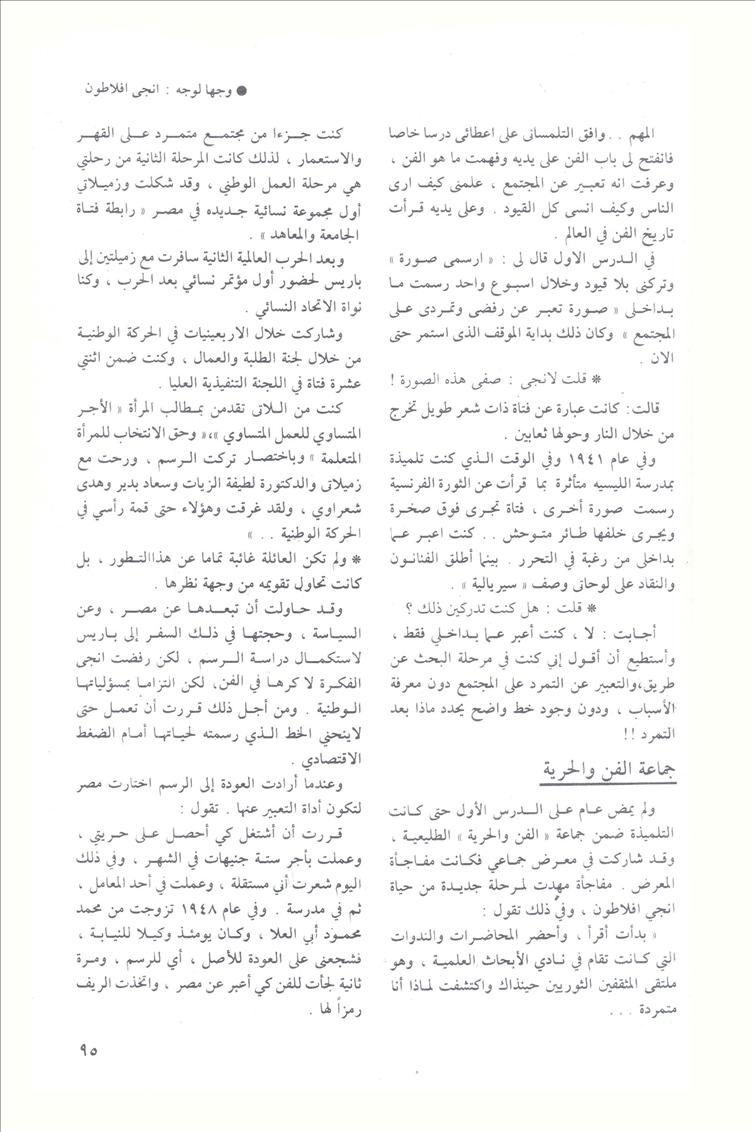 ● وجها لوجه : انجى افلاطون
المهم . . وافق التلمسانى على اعطائى درسا خاصا
فانفتح لى باب الفن على يديه وفهمت ما هو الفن ،
وعرفت انه تعبير عن المجتمع ، علمنى كيف ارى
الناس وكيف انسى كل القيود . وعلى يديه قرأت
تاريخ الفن في العالم .
في الدرس الاول قال لى : « ارسمى صورة »
وتركنى بلا قيود وخلال اسبوع واحد رسمت ما
بداخلى « صورة تعبر عن رفضى وتمردى على
المجتمع » وكان ذلك بداية الموقف الذى استمر حتى
الان .
* قلت لانجى : صفى هذه الصورة !
قالت: كانت عبارة عن فتاة ذات شعر طويل تخرج
من خلال النار وحولها ثعابين .
وفي عام ١٩٤١ وفي الوقت الذي كنت تلميذة
بمدرسة الليسيه متأثرة بما قرأت عن الثورة الفرنسية
رسمت صورة أخرى ، فتاة تجرى فوق صخرة
ويجرى خلفها طائر متوحش . . كنت اعبر عما
بداخلى من رغبة في التحرر . بينما أطلق الفنانون
والنقاد على لوحاتى وصف « سيريالية » .
* قلت : هل كنت تدركين ذلك ؟
أجابت : لا ، كنت أعبر عما بداخلي فقط ،
وأستطيع أن أقول إني كنت في مرحلة البحث عن
طريق،والتعبير عن التمرد على المجتمع دون معرفة
الأسباب ، ودون وجود خط واضح يحدد ماذا بعد
التمرد !!
جماعة الفن والحرية
ولم يمض عام على الدرس الأول حتى كانت
التلميذة ضمن جماعة « الفن والحرية » الطليعية ،
وقد شاركت في معرض جماعي فكانت مفاجأة
المعرض . مفاجأة مهدت لمرحلة جديدة من حياة
انجي افلاطون ، وفي ذلك تقول :
« بدأت أقرأ ، وأحضر المحاضرات والندوات
التي كانت تقام في نادي الأبحاث العلمية ، وهو
ملتقى المثقفين الثوريين حينذاك واكتشفت لماذا أنا
متمردة . . .
كنت جزءا من مجتمع متمرد على القهر
والاستعمار ، لذلك كانت المرحلة الثانية من رحلتي
هي مرحلة العمل الوطني ، وقد شكلت وزميلاتي
أول مجموعة نسائية جديده في مصر « رابطة فتاة
الجامعة والمعاهد » .
وبعد الحرب العالمية الثانية سافرت مع زميلتين إلى
باريس لحضور أول مؤتمر نسائي بعد الحرب ، وكنا
نواة الاتحاد النسائي .
وشاركت خلال الاربعينيات في الحركة الوطنية
من خلال لجنة الطلبة والعمال ، وكنت ضمن اثنتي
عشرة فتاة في اللجنة التنفيذية العليا .
كنت من اللاتى تقدمن بمطالب المرأة « الأجر
المتساوي للعمل المتساوي »،« وحق الانتخاب للمرأة
المتعلمة » وباختصار تركت الرسم ، ورحت مع
زميلاتى والدكتورة لطيفة الزيات وسعاد بدير وهدى
شعراوي ، ولقد غرقت وهؤلاء حتى قمة رأسي في
الحركة الوطنية . . »
* ولم تكن العائلة غائبة تماما عن هذاالتطور ، بل
كانت تحاول تقويمه من وجهة نظرها .
وقد حاولت أن تبعدها عن مصر ، وعن
السياسة ، وحجتها في ذلك السفر إلى باريس
لاستكمال دراسة الرسم ، لكن رفضت انجى
الفكرة لا كرها في الفن، لكن التزاما بمسؤلياتها
الوطنية . ومن أجل ذلك قررت أن تعمل حتى
لاينحني الخط الذي رسمته لحياتها أمام الضغط
الاقتصادي .
وعندما أرادت العودة إلى الرسم اختارت مصر
لتكون أداة التعبير عنها . تقول :
قررت أن أشتغل كي أحصل على حريتي ،
وعملت بأجر ستة جنيهات في الشهر ، وفي ذلك
اليوم شعرت أني مستقلة ، وعملت في أحد المعامل ،
ثم في مدرسة . وفي عام ١٩٤٨ تزوجت من محمد
محمود أبي العلا ، وكان يومئذ وكيلا للنيابة ،
فشجعنى على العودة للأصل ، أي للرسم ، ومرة
ثانية لجأت للفن كي أعبر عن مصر ، واتخذت الريف
رمزاً لها .
٩٥